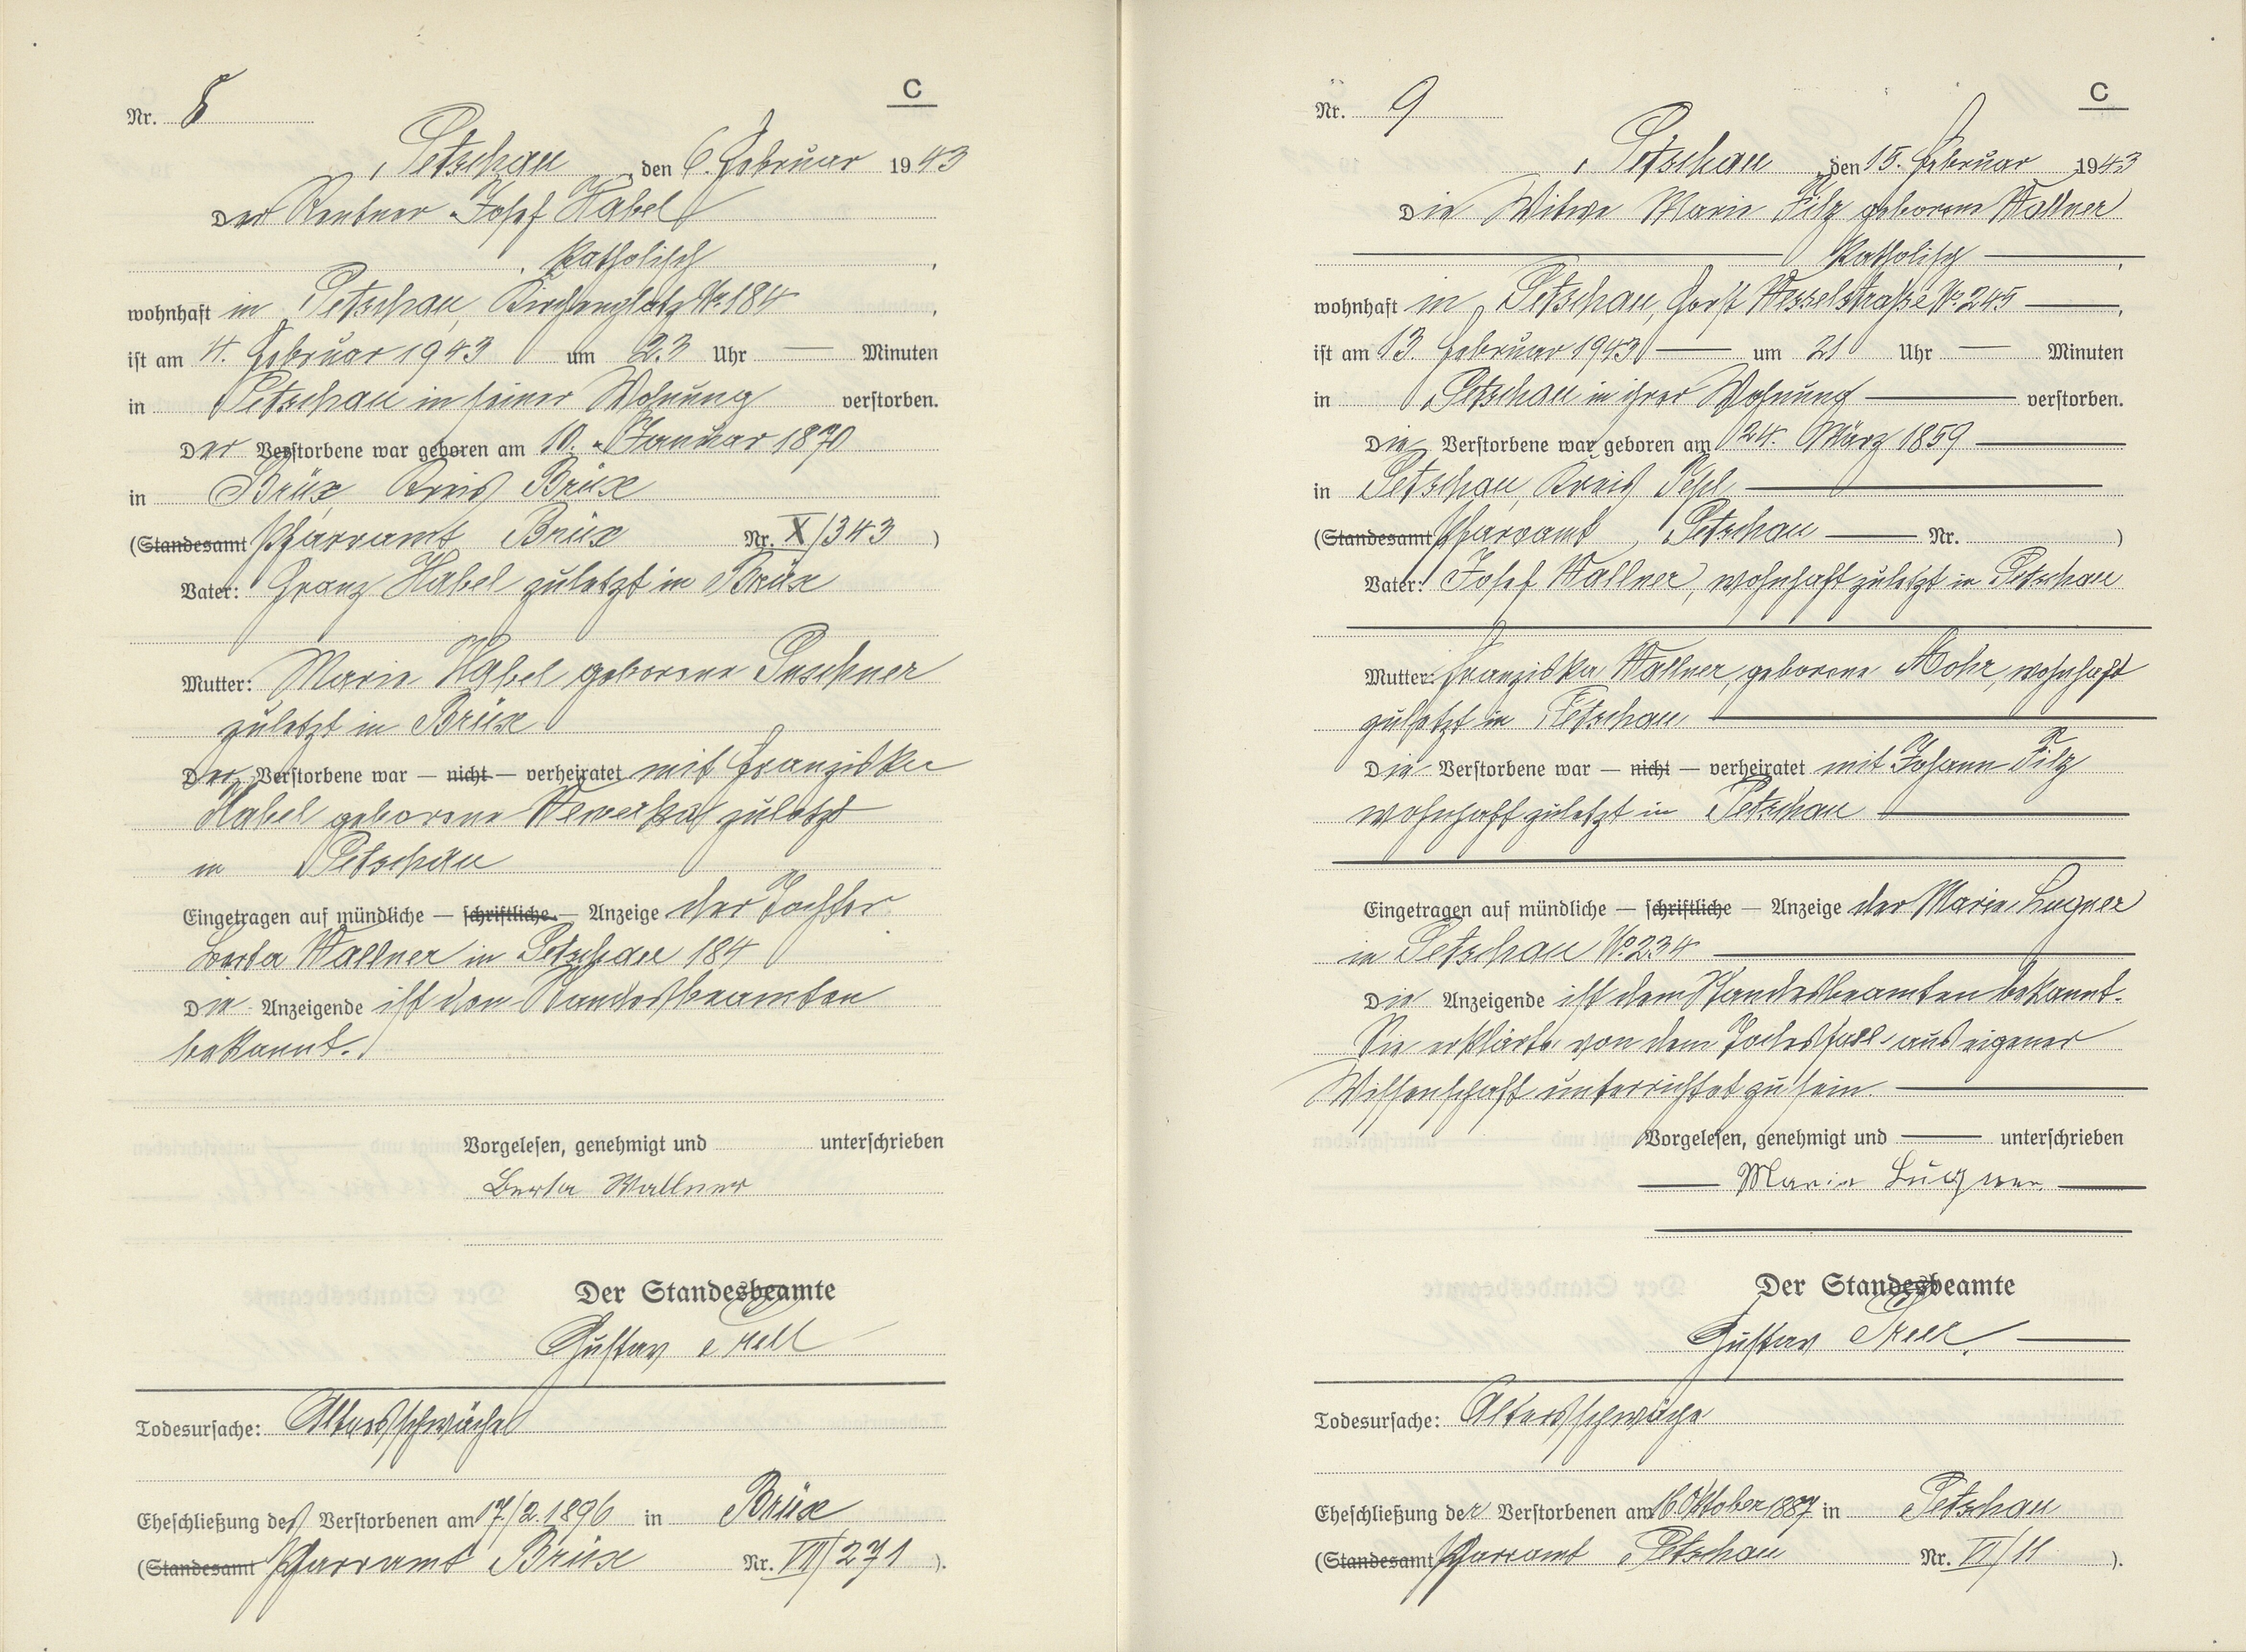 C
Nr. 8
Petschau, den 6. Februar 1943
Der Rentner Josef Habel
katholisch,
wohnhaft in Petschau, Kirchenplatz No. 184,
ist am 4. Februar 1943 um 23 Uhr — Minuten
in Petschau in seiner Wohnung verstorben.
Der Verstorbene war geboren am 10. Januar 1870
in Brüx, Kreis Brüx
(Standesamt Pfarramt Brüx Nr. X/343)
Vater: Franz Habel zuletzt in Brüx
Mutter: Marie Habel geborene Puschner
zuletzt in Brüx
Der Verstorbene war — nicht — verheiratet mit Franziska
Habel geborene Wewerka zuletzt
in Petschau
Eingetragen auf mündliche — schriftliche — Anzeige der Tochter
Berta Wallner in Petschau 184
Die Anzeigende ist den Standesbeamten
bekannt.
Vorgelesen, genehmigt und unterschrieben
Berta Wallner
Der Standesbeamte
Gustav
Todesursache: Altersschwäche
Eheschließung des Verstorbenen am 17/2. 1896 in Brüx
(Standesamt Pfarramt Brüx Nr. VII/271).
C
Nr. 9
Petschau, den 15. Februar 1943
Die Witwe Marie Filz geborene Wallner
katholisch,
wohnhaft in Petschau, Horst Wesselstraße No. 245,
ist am 13. Februar 1943 — um 21 Uhr — Minuten
in Petschau in ihrer Wohnung — verstorben.
Die Verstorbene war geboren am 24. März 1859
in Petschau, Kreis Tepl
(Standesamt Pfarramt Petschau — Nr. )
Vater: Josef Wallner, wohnhaft zuletzt in Petschau
Mutter: Franziska Wallner, geborene Mohr, wohnhaft
zuletzt in Petschau
Die Verstorbene war — nicht — verheiratet mit Johann Filz
wohnhaft zuletzt in Petschau
Eingetragen auf mündliche — schriftliche — Anzeige der Marie Lugner
in Petschau No. 234
Die Anzeigende ist dem Standesbeamten bekannt.
Sie erklärte von dem Todesfall aus eigener
Wissenschaft unterrichtet zu sein.
Vorgelesen, genehmigt und — unterschrieben
Marie Lugner
Der Standesbeamte
Gustav
Todesursache: Altersschwäche
Eheschließung der Verstorbenen am 16. Oktober 1887 in Petschau
(Standesamt Pfarramt Petschau Nr. VI/11).